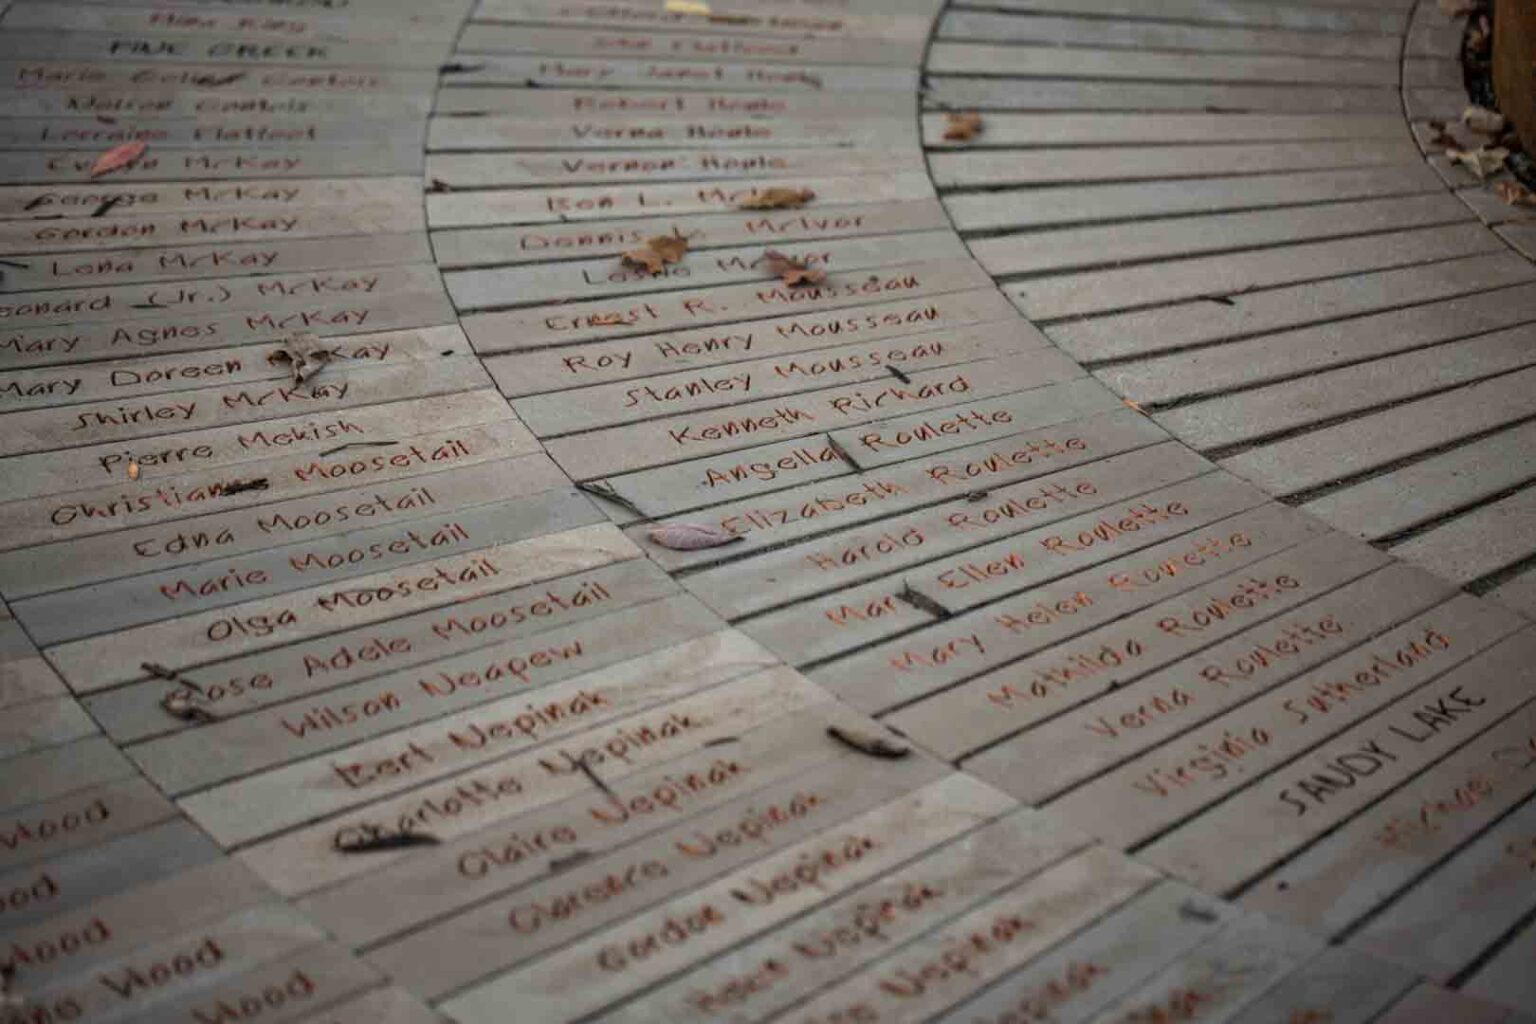 PINE CREEK
Marie
Lorraine Flatfoot
McKay
George McKay
Gordon McKay
Lena McKay
(Jr.) McKay
Mary Agnes McKay
Mary Doreen
Shirley McKay
Pierre Mekish
Christian Moosetail
Edna Moosetail
Marie Moosetail
Olga Moosetail
Rose Adele Moosetail
Wilson Neapew
Bert Nepinak
Charlotte Nepinak
Claire Nepinak
Clarence Nepinak
Gordon Nepinak
Nepinak
Nepinak
Mary Janet Houle
Robert Houle
Verna Houle
Vernon Houle
Ben L.
Dennis McIvor
Leslie
Ernest R. Mousseau
Roy Henry Mousseau
Stanley Mousseau
Kenneth Richard
Angella Roulette
Elizabeth Roulette
Harold Roulette
Mary Ellen Roulette
Mary Helen Roulette
Mathilda Roulette
Verna Roulette
Virginia Sutherland
SANDY LAKE
Wood
Wood
Wood
Wood